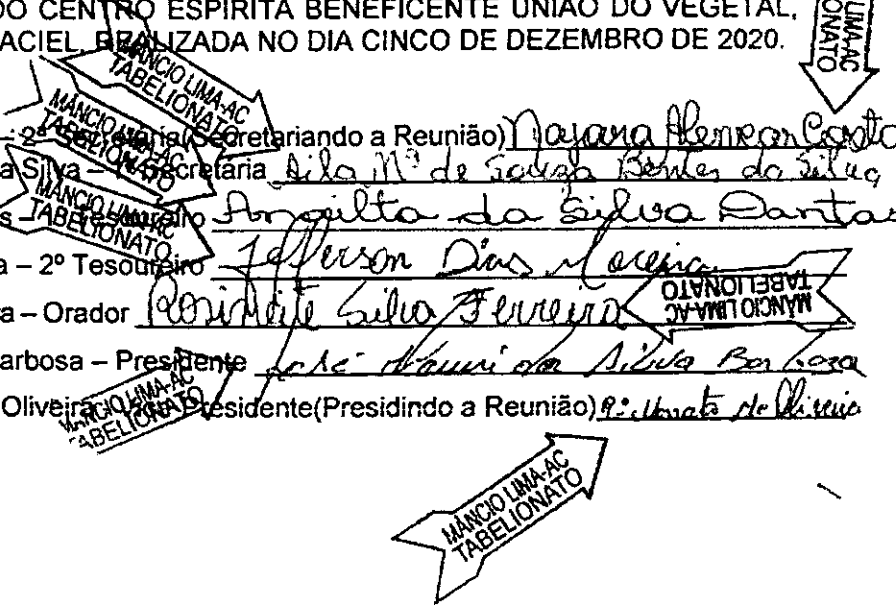 DO CENTRO ESPÍRITA BENEFICENTE UNIÃO DO VEGETAL,
ACIEL, REALIZADA NO DIA CINCO DE DEZEMBRO DE 2020.
LIMA-AC
ONATO
MÂNCIO LIMA-AC
TABELIONATO
MÂNCIO LIMA-AC
TABELIONATO
– 2ª Secretária(Secretariando a Reunião) Nayara Alencar Costa
a Silva – Secretária Aila Mª de Souza Bentes da Silva
MÂNCIO LIMA-AC
TABELIONATO
s – Tesoureiro Angilto da Silva Dantas
a – 2º Tesoureiro Jefferson Dias Moreira
MÂNCIO LIMA-AC
TABELIONATO
a – Orador Rosineite Silva Ferreira
arbosa – Presidente José Mauri da Silva Barboza
MÂNCIO LIMA-AC
TABELIONATO
Oliveira Presidente(Presidindo a Reunião) de Oliveira
MÂNCIO LIMA-AC
TABELIONATO